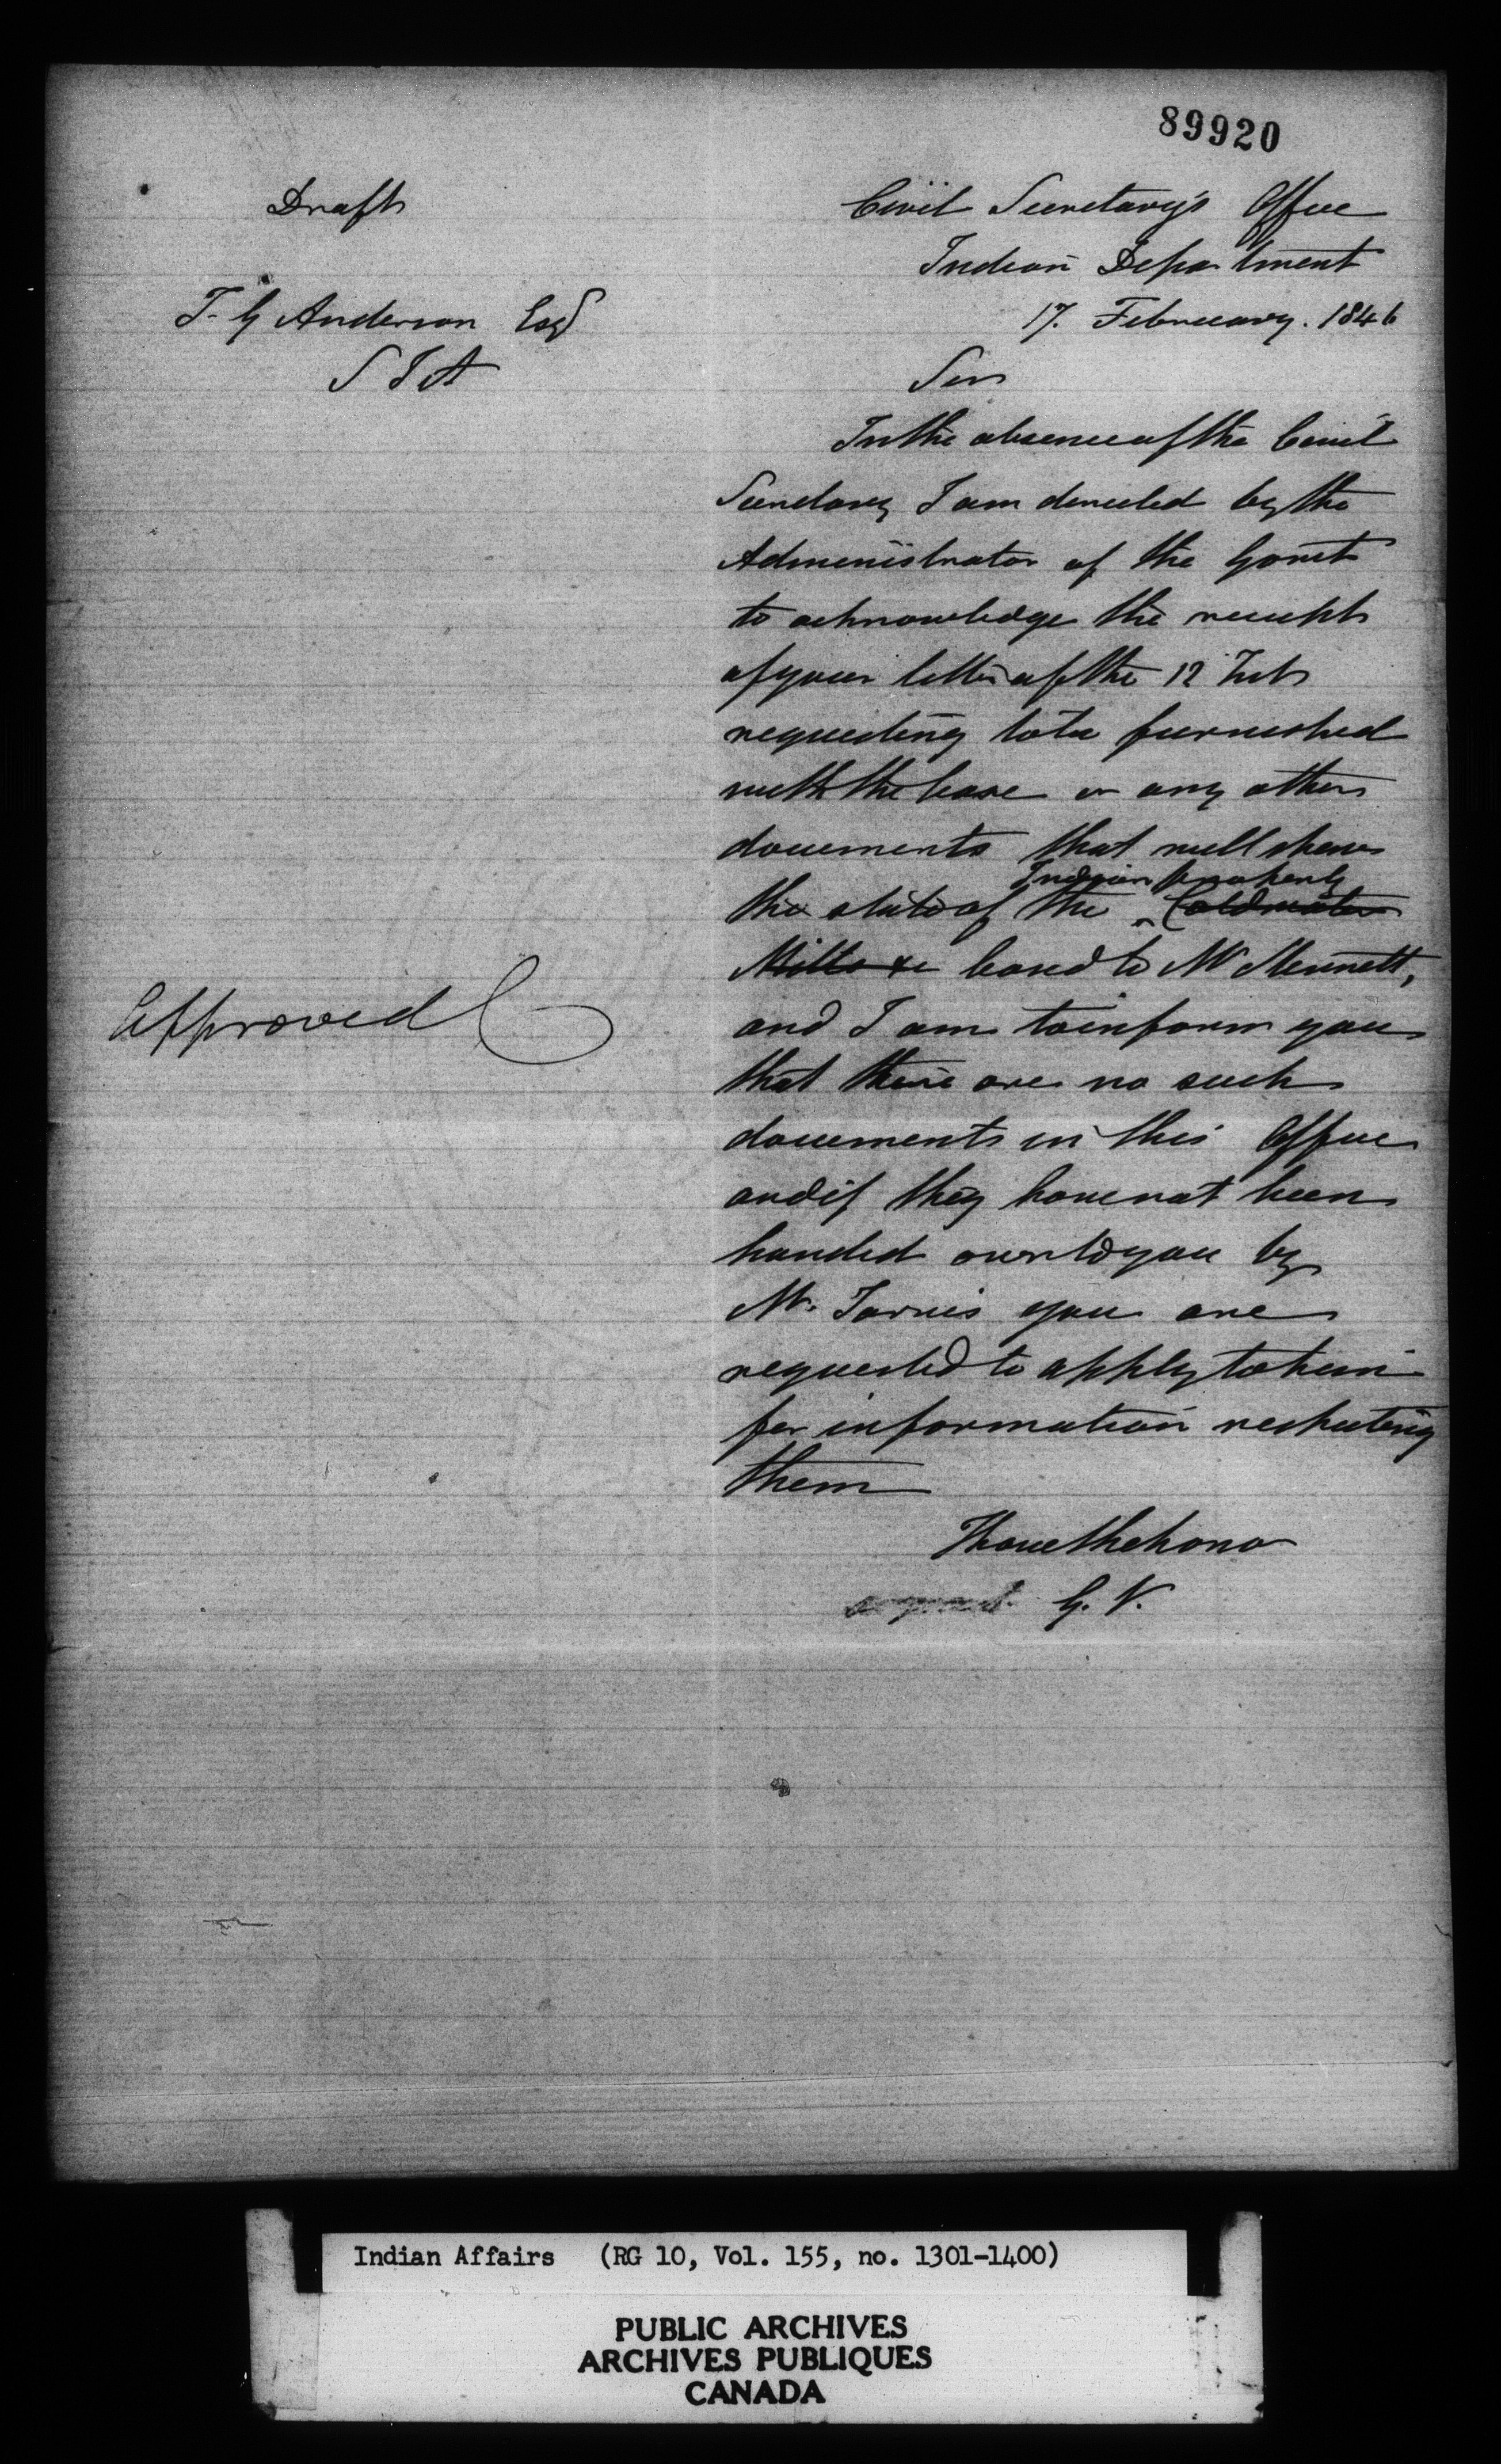 89920
Draft
T. G Anderson Esqr
S I A
Civil Secretary's Office
Indian Department
17. February. 1846
Sir
In the absence of the Civil
Secretary I am directed by the
Administrator of the Govnt
to acknowledge the receipt
of your letter of the 12 Feb
requesting to be furnished
with the lease or any other
documents that will shew
Indian property
the state of the ^ Coldwater
Mills &c leased to Mr
and I am to inform you
that there are no such
documents in this Office
and if they have not been
handed over to you by
Mr. Jarvis you are
requested to apply to him
for information respecting
them
I have the hono
G. V.
Approved
Indian Affairs (RG 10, Vol. 155, no. 1301-1400)
PUBLIC ARCHIVES
ARCHIVES PUBLIQUES
CANADA